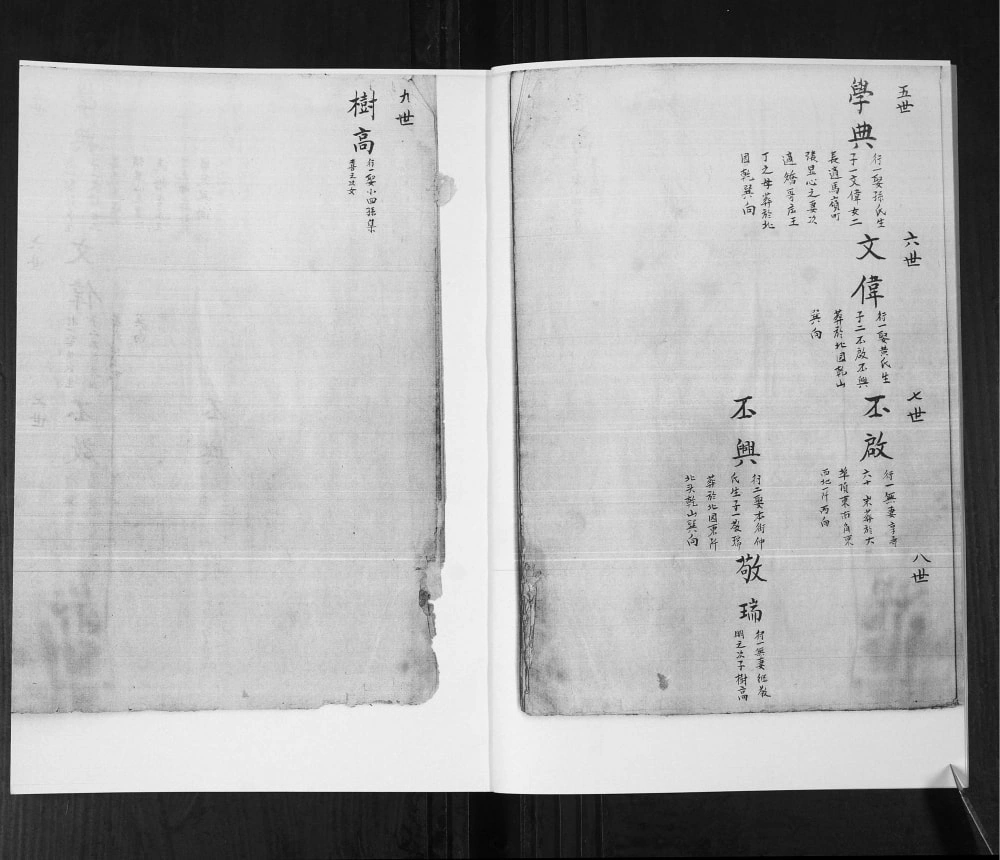 五世
學典
行一娶孫氏生
子一文偉女二
長適馬嶺町
張显心之妻次
適矯哥庄王
丁之母葬於北
園乾巽向
六世
文偉
行一娶黄氏生
子二丕啟丕興
葬於北園乾山
巽向
七世
丕啟
行一無妻享壽
六十 葬於大
東南角東
西地一所丙向
丕興
行二娶本街仲
氏生子一敬瑞
葬於北園東所
北头乾山巽向
八世
敬瑞
行一無妻继敬
明之次子樹高
九世
樹高
行一娶小四孫集
喜之次女